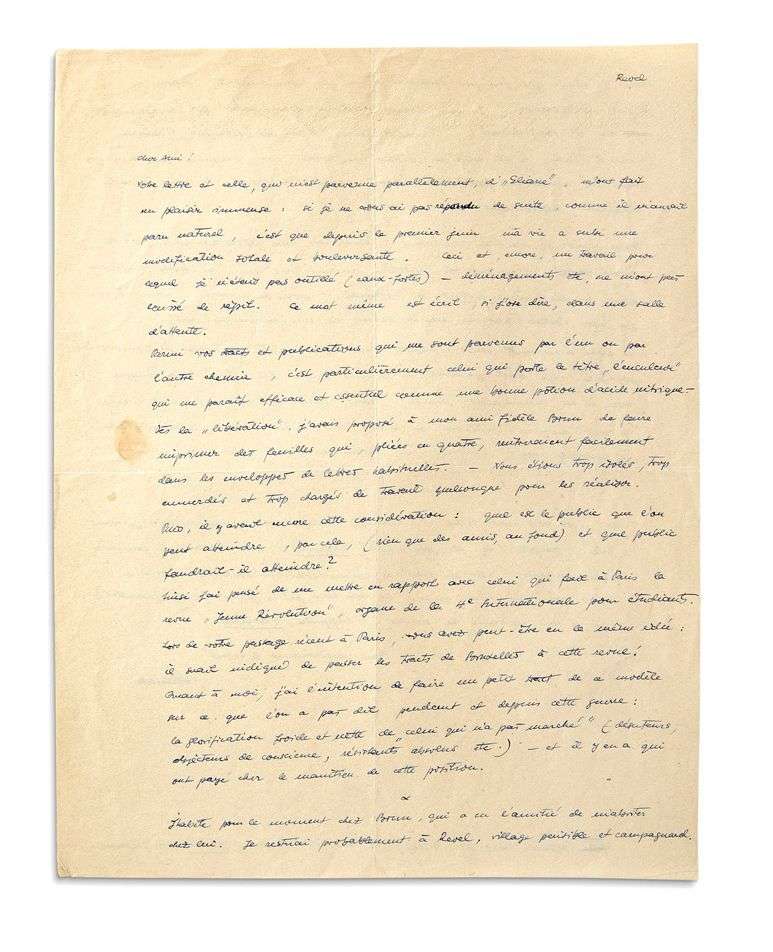 Revel
cher ami !
votre lettre et celle, qui m'est parvenue parallèlement, d'"Eliane", m'ont fait
un plaisir immense. si je ne vous ai pas répondu de suite, comme il m'aurait
paru naturel, c'est que depuis le premier juin ma vie a subi une
modification totale et bouleversante. Ceci et, encore, un travail pour
lequel je n'étais pas outillé (eaux-fortes) — déménagements etc, ne m'ont pas
laissé de répit. Ce mot même est écrit, si j'ose dire, dans une salle
d'attente.
Parmi vos tracts et publications qui me sont parvenus par l'un ou par
l'autre chemin, c'est particulièrement celui qui porte le titre "l'enculeur"
qui me paraît efficace et essentiel comme une bonne potion d'acide nitrique —
Dès la "libération" j'avais proposé à mon ami Fidèle de faire
imprimer des feuilles qui, pliées en quatre, rentreraient facilement
dans les enveloppes de lettres habituelles. — Nous étions trop isolés, trop
emmerdés et trop chargés de travail quelconque pour les réaliser.
Puis, il y avait encore cette considération : quel est le public que l'on
peut atteindre, par cela, (rien que des amis, au fond) et quel public
faudrait-il atteindre ?
Ainsi j'ai pensé de me mettre en rapport avec celui qui fait à Paris la
revue "Jeune Révolution", organe de la 4e Internationale pour étudiants.
Lors de votre passage récent à Paris, vous avez peut-être eu la même idée :
il serait indiqué de passer les tracts de Bruxelles à cette revue !
Quant à moi, j'ai l'intention de faire un petit tract de ce modèle
sur ce que l'on a pas dit pendant et depuis cette guerre :
la glorification froide et nette de "celui qui n'a pas marché" (déserteurs,
objecteurs de conscience, résistants absolus etc.) — et il y en a qui
ont payé cher le maintien de cette position.
J'habite pour le moment chez, qui a eu l'amitié de m'abriter
chez lui. Je resterai probablement à Revel, village paisible et campagnard.